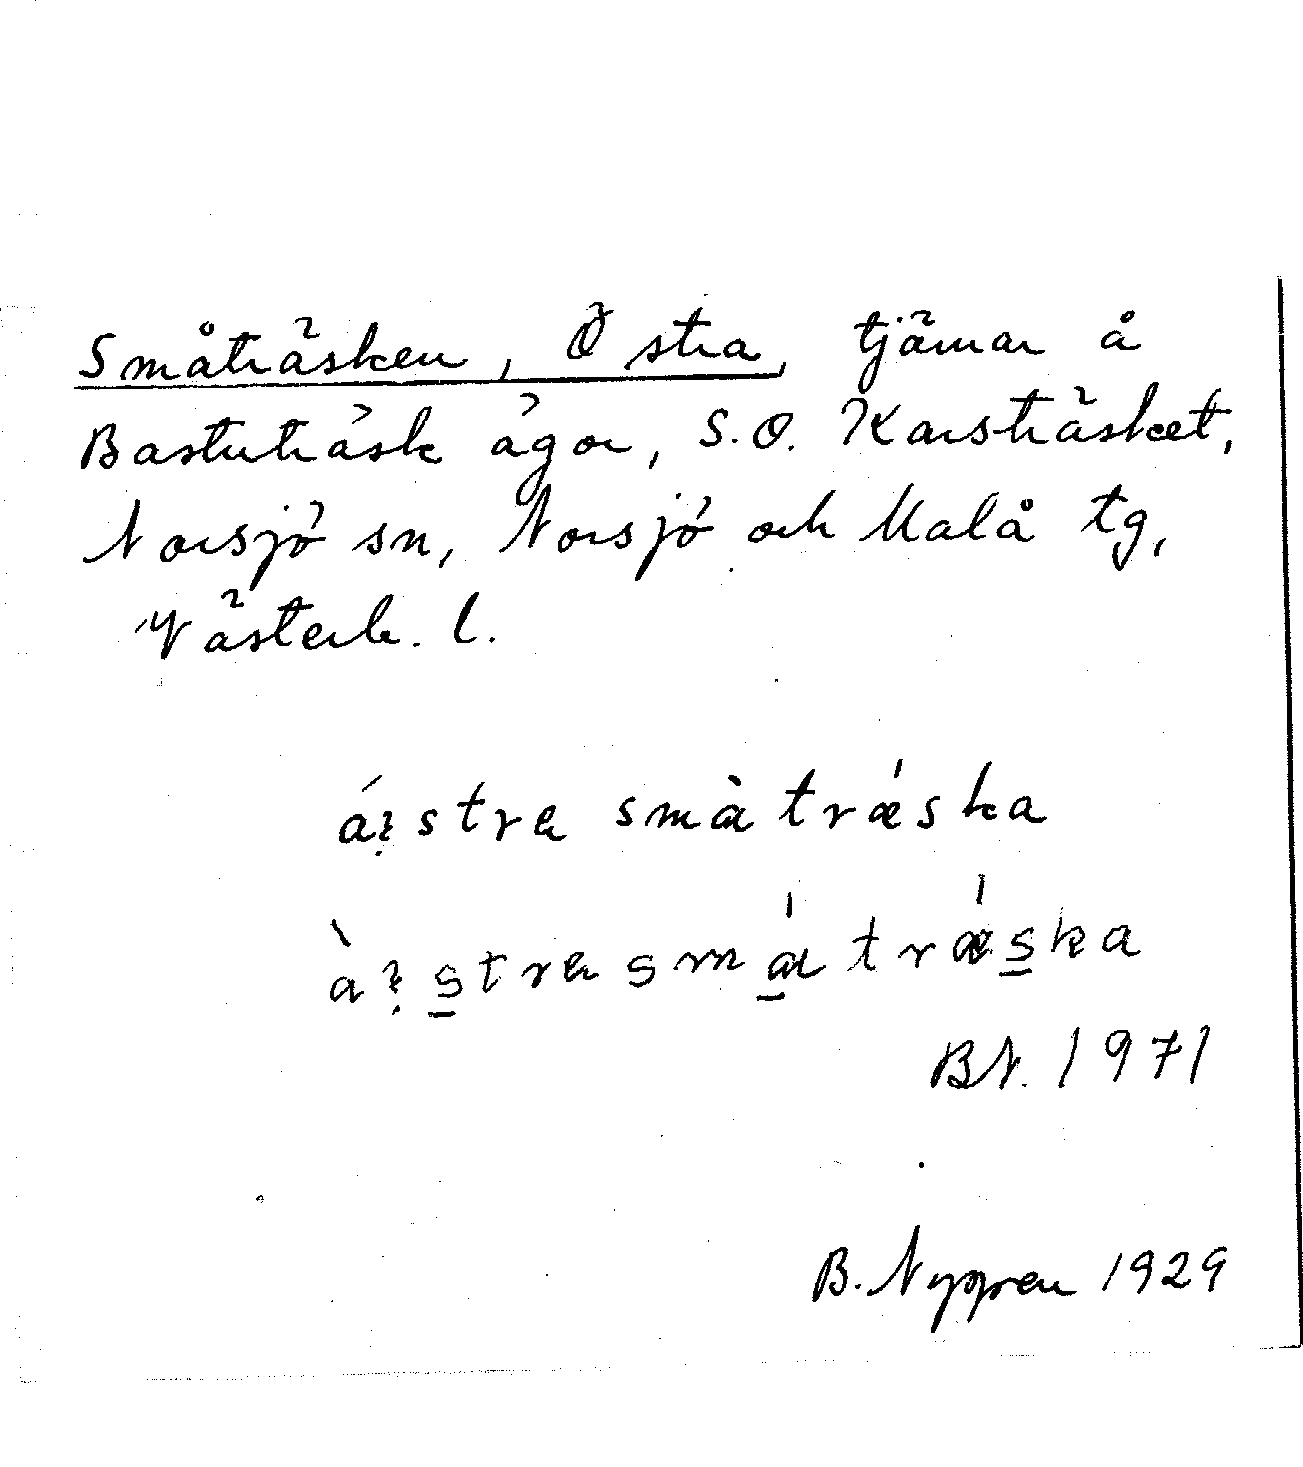 Småträsken, Östra, tjärnar å
Bastuträsk ägor, S.O. Karsträsket,
Norsjö sn, Norsjö och Malå tg,
Västerb. l.
småtræska
BN. 1971
B. Nygren 1929